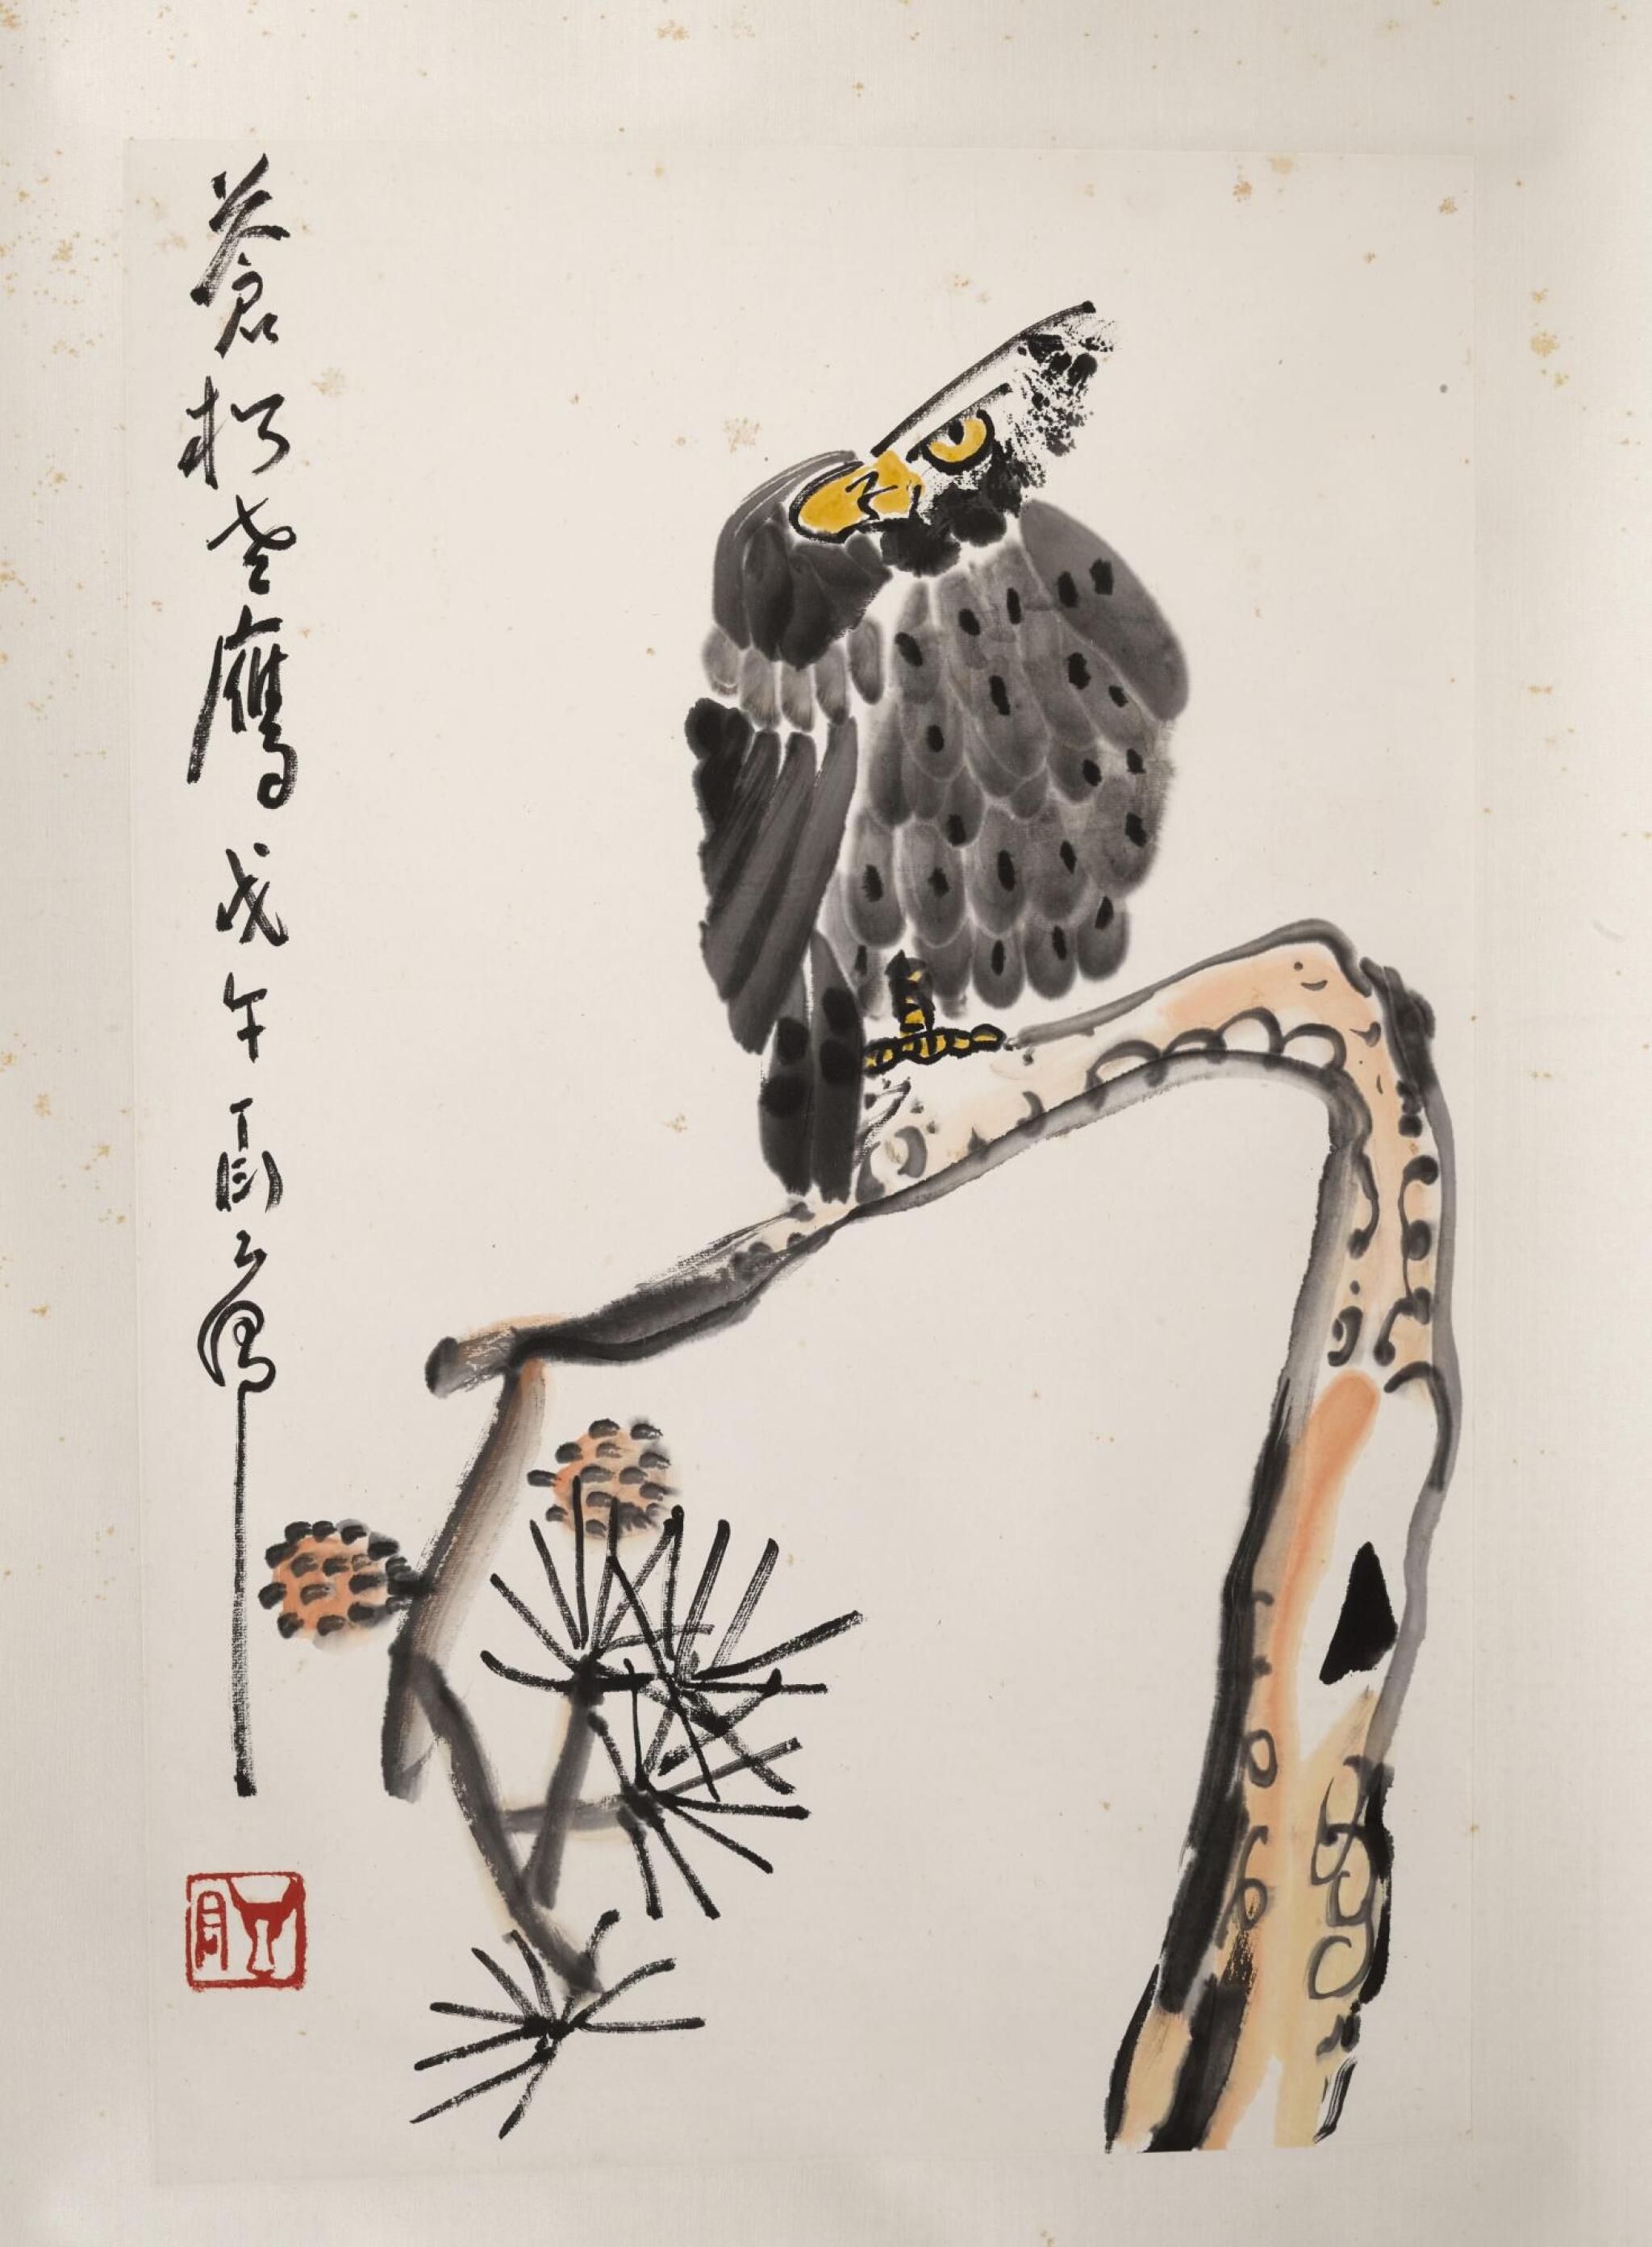 蒼松老鷹戊午丁衍庸